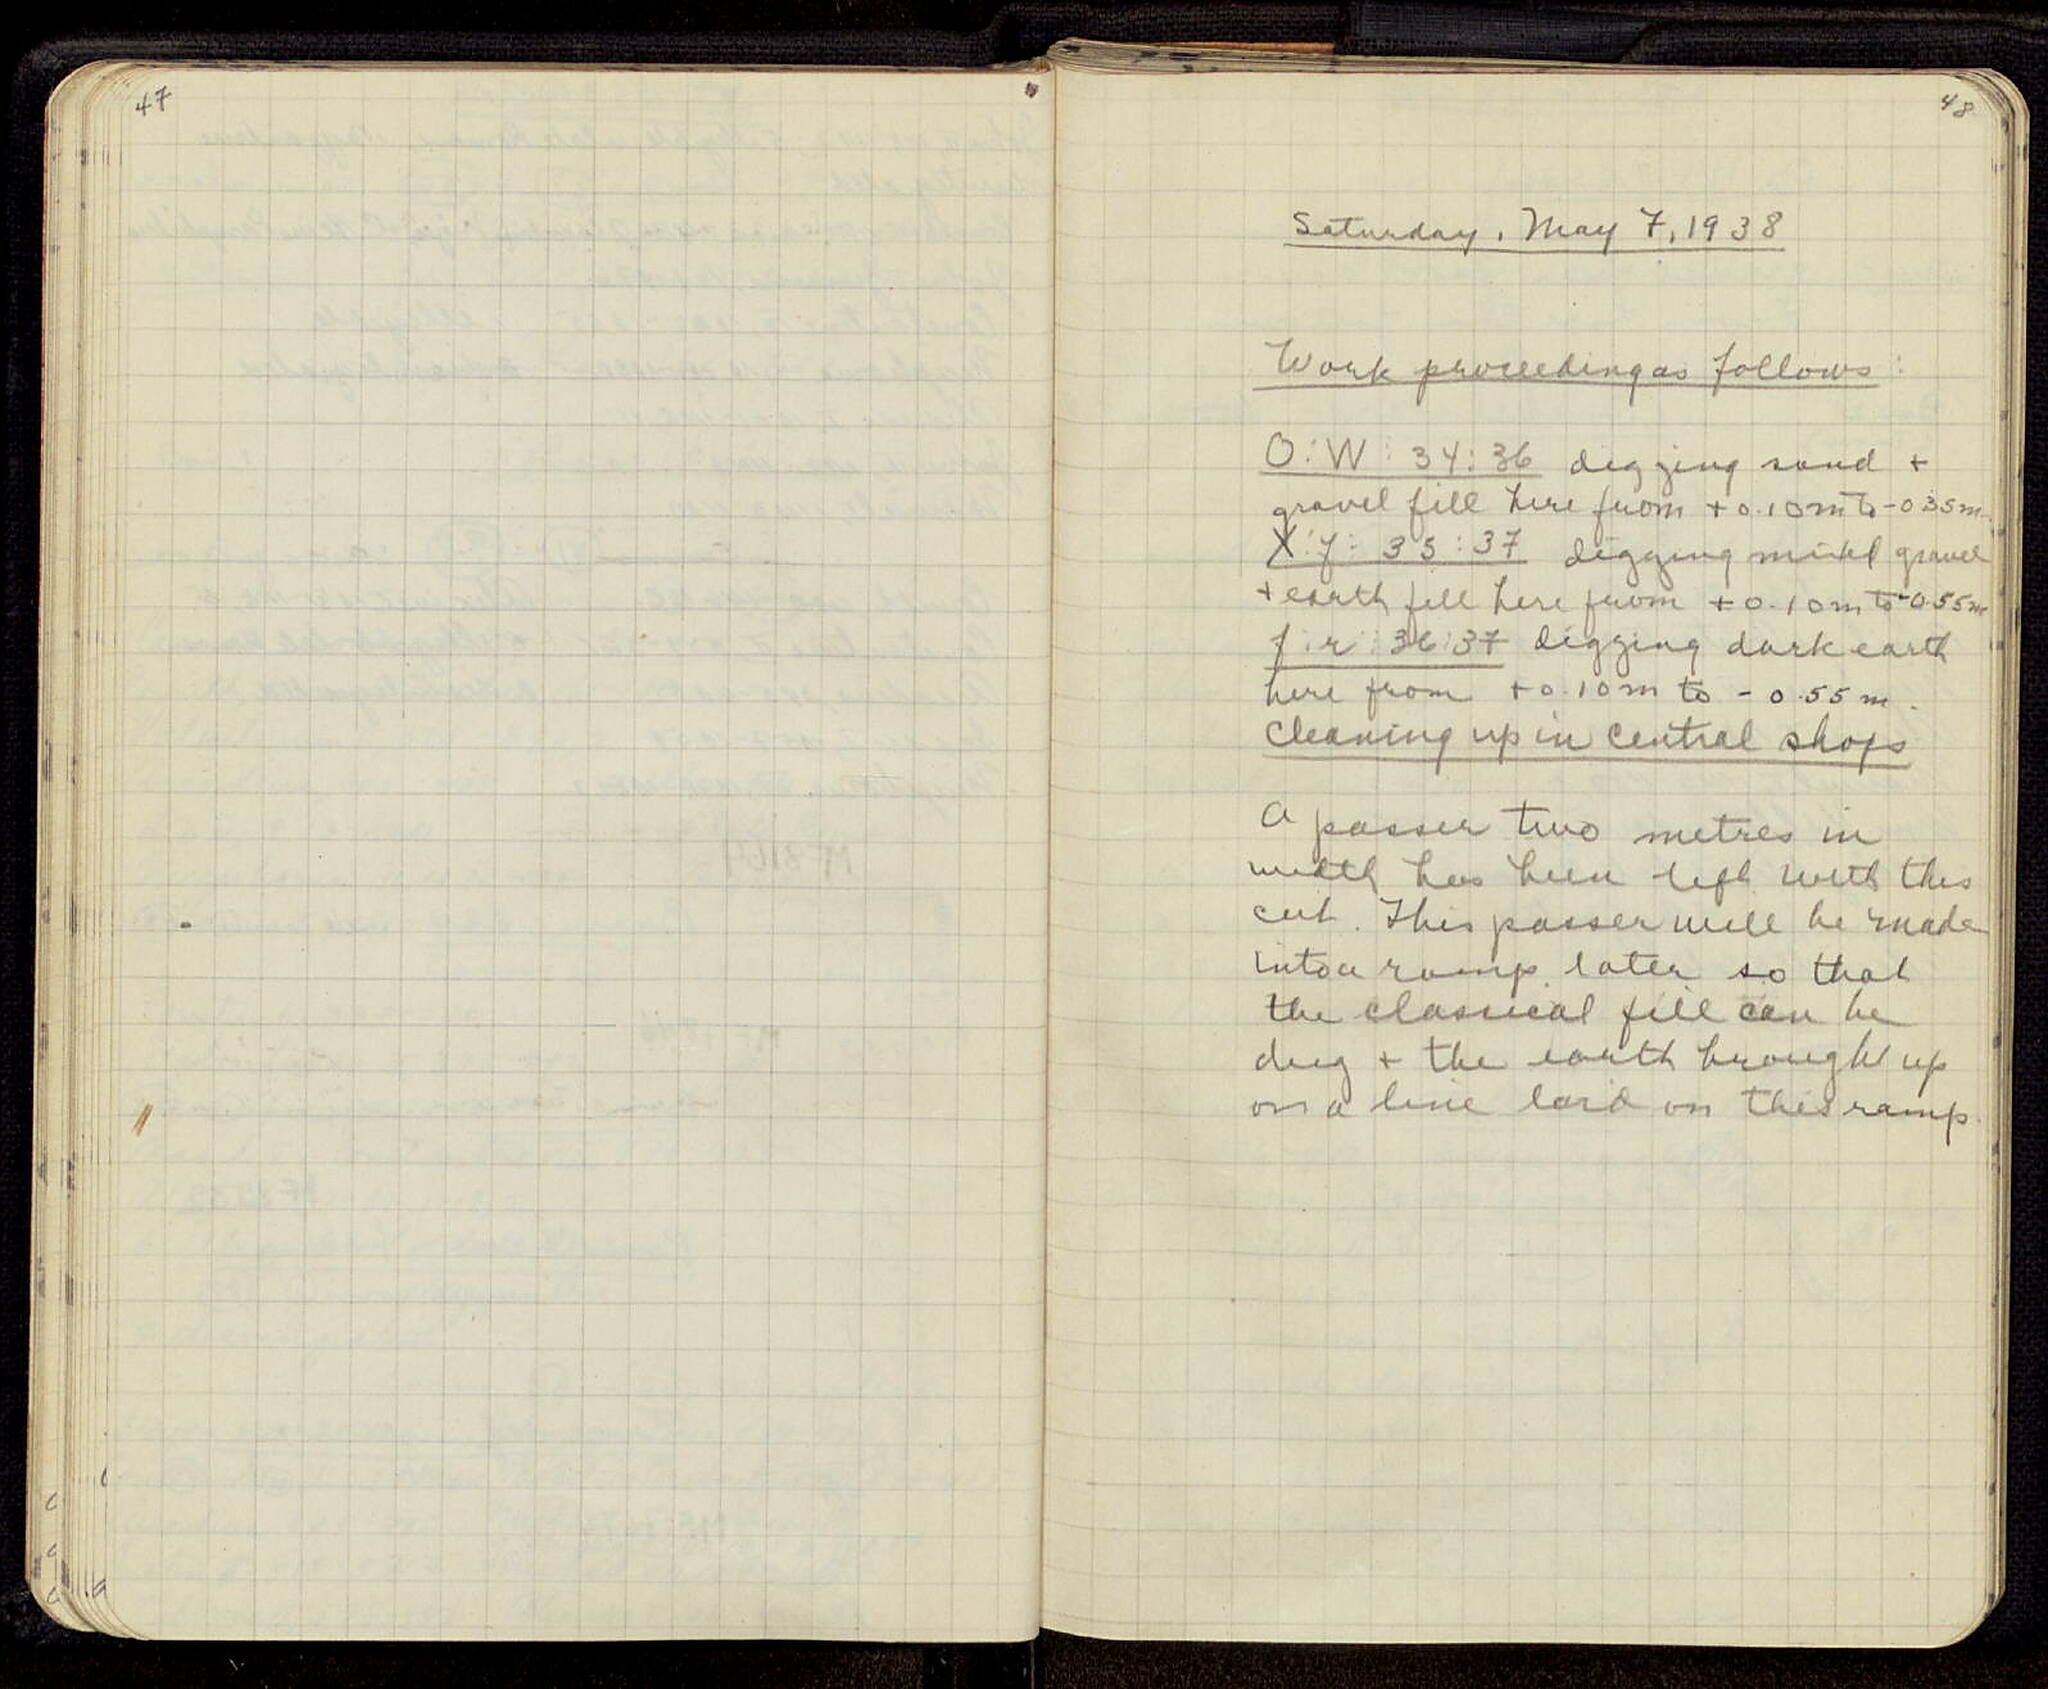 47
48
Saturday, May 7, 1938
Work proceeding as follows:
O:W:34:36 digging sand +
gravel fill here from +0.10m to -0.35m
X:J: 35:37 digging mixed gravel
+ earth fill here from +0.10m to -0.55m
J:r:36:37 digging dark earth
here from +0.10m to -0.55m.
Cleaning up in central shops
A passer two metres in
width has been left with this
cut. This passer will be made
into a ramp later so that
the classical fill can be
dug + the earth brought up
on a line laid on this ramp.